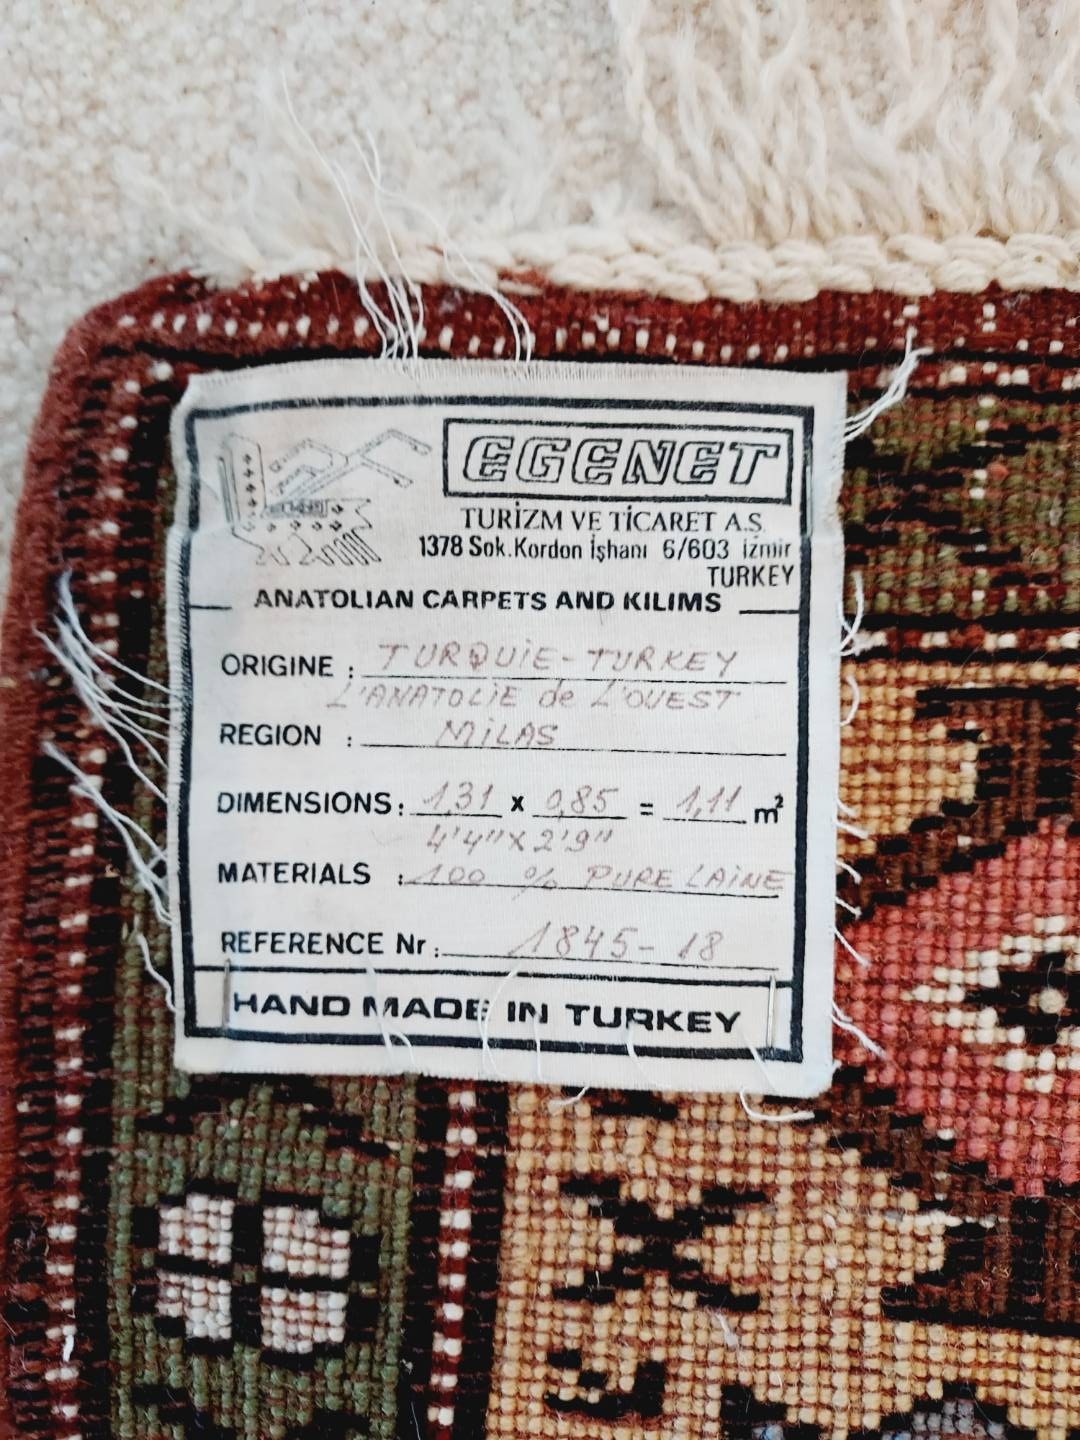 EGENET
TURİZM VE TİCARET A.Ş.
1378 Sok.Kordon İşhanı 6/603 İzmir
TURKEY
ANATOLIAN CARPETS AND KILIMS
ORIGINE : TURQUiE-TURKEY
L'ANATOLiE de L'OUEST
REGION : MiLAS
DIMENSIONS: 1,31 x 0,85 = 1,11 m²
4'4"x2'9"
MATERIALS : 100 % PURE LAiNE
REFERENCE Nr : 1845-18
HAND MADE IN TURKEY